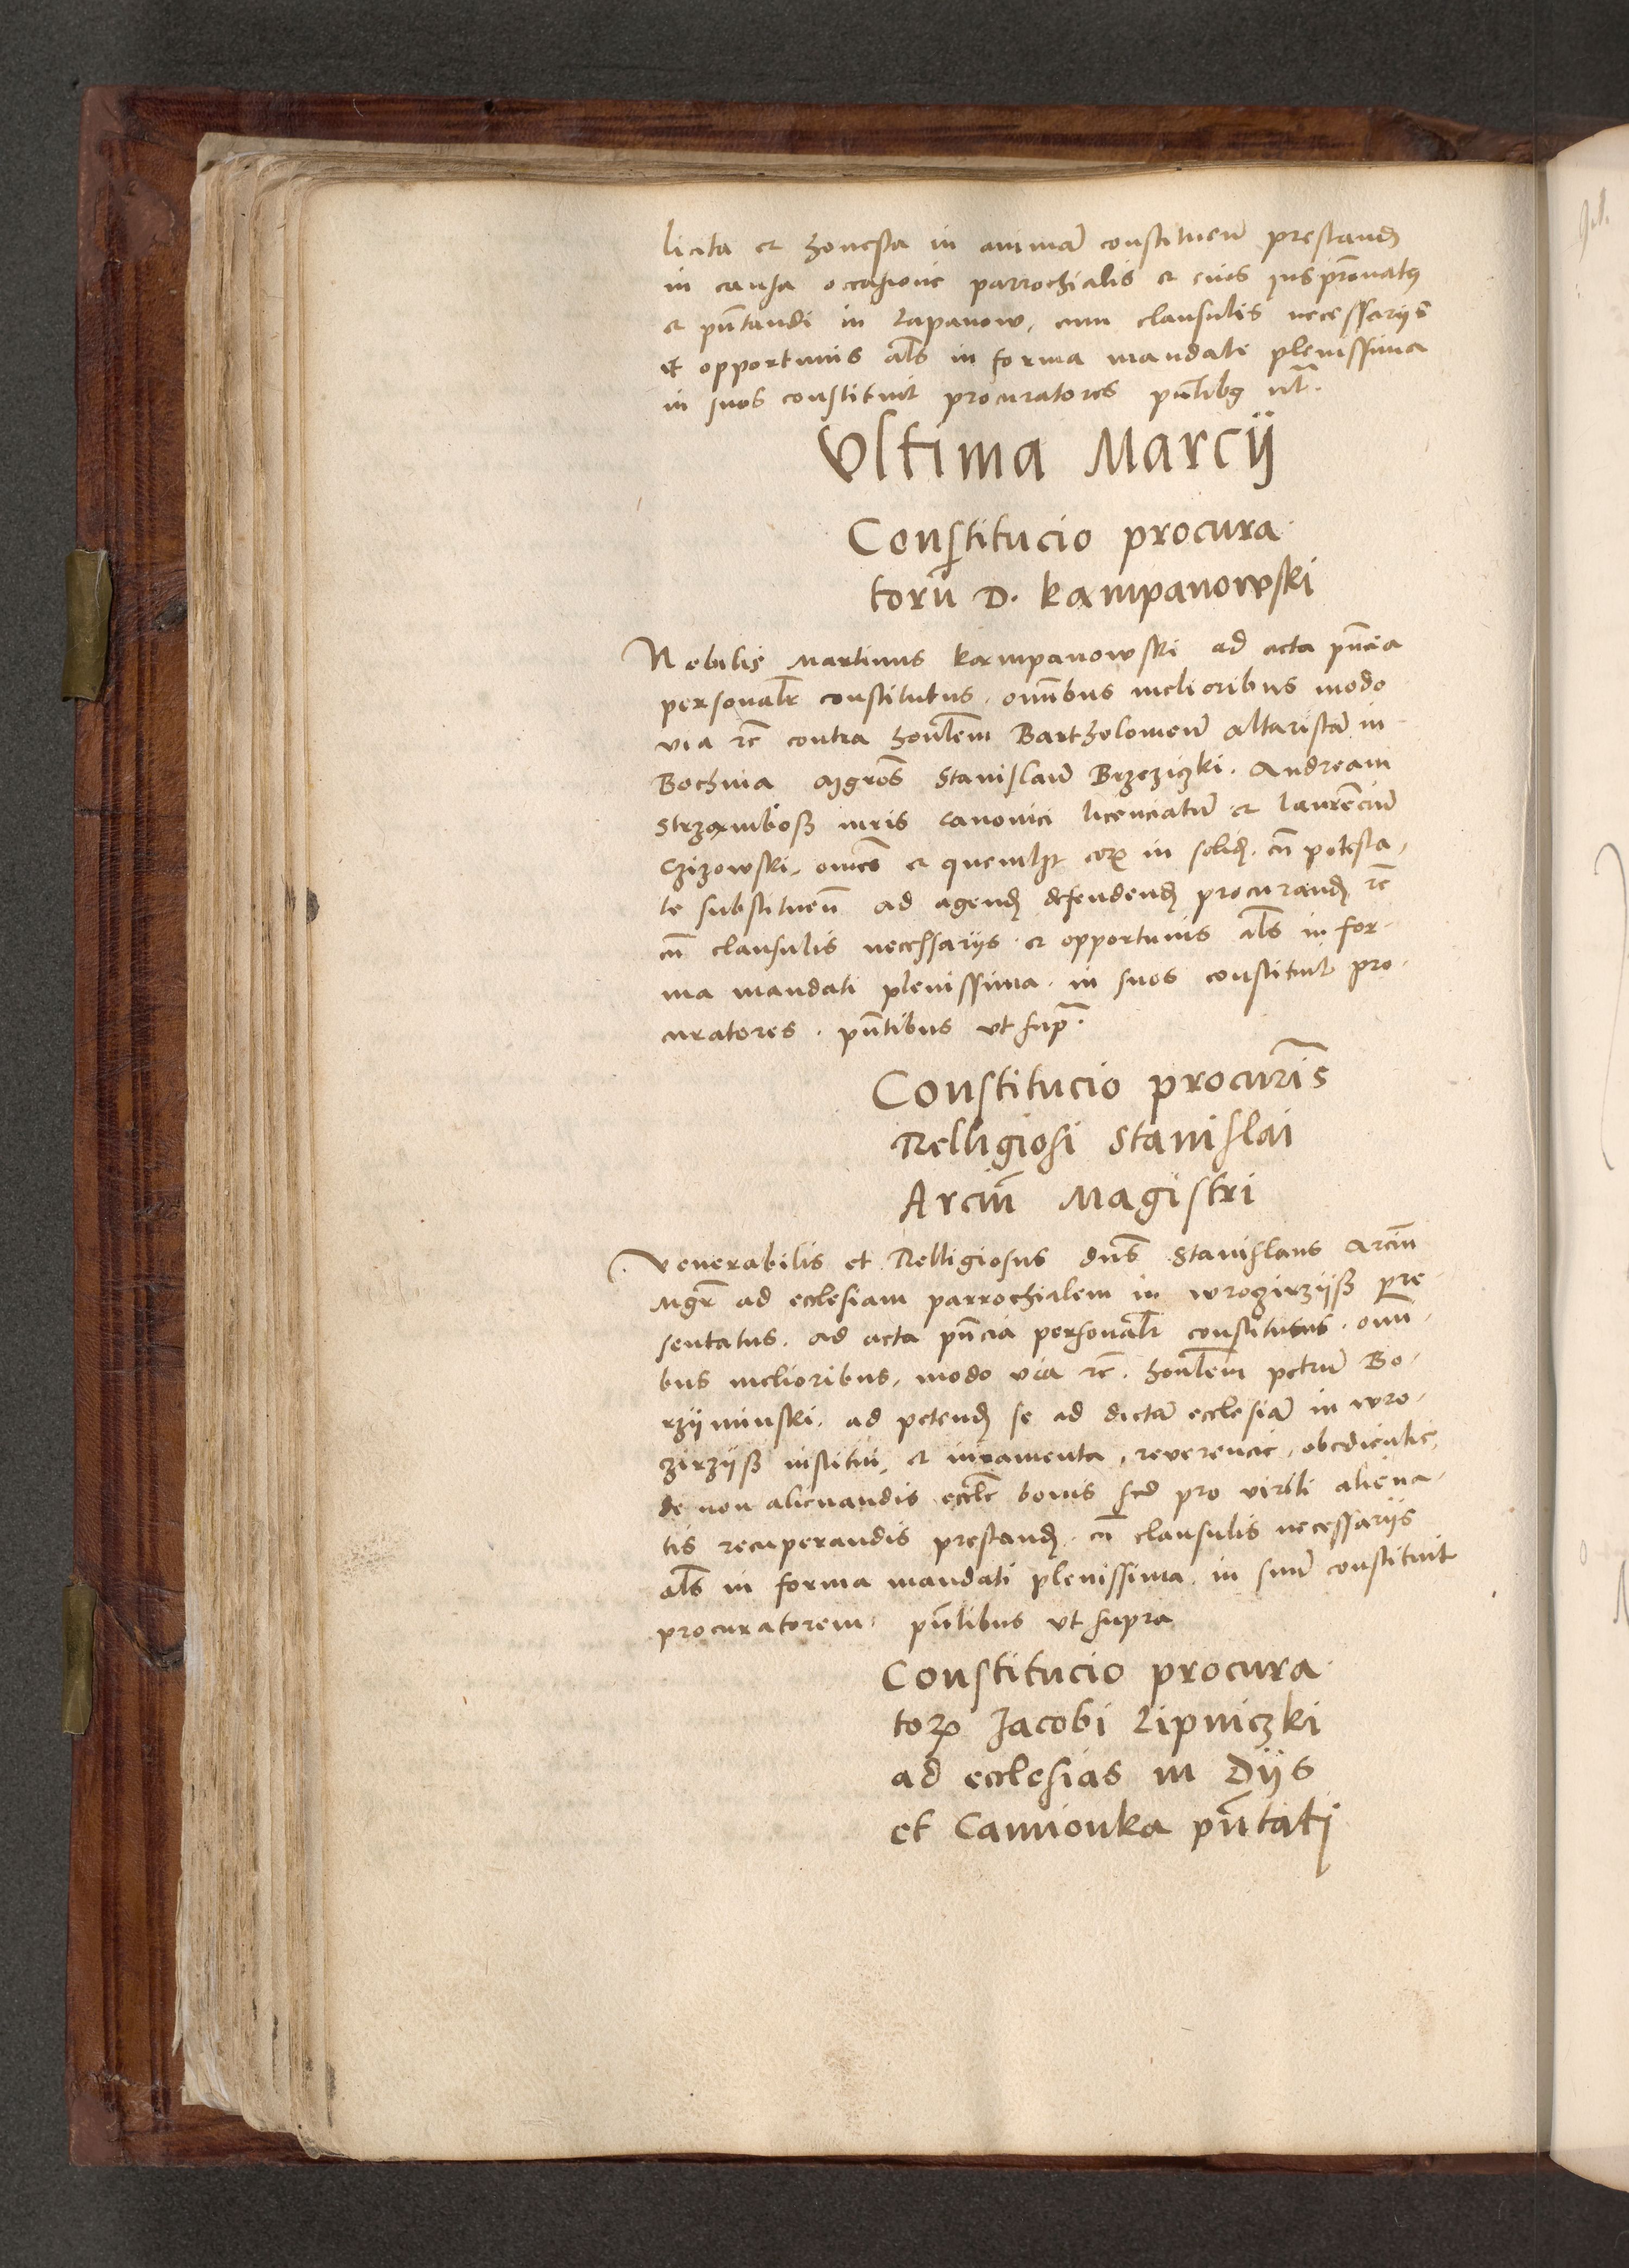 licita et honesta in animā constituen̄ prestand̨
in causa occasione parrochialis et eius iuspr̄onatus
et pn̄tandi in Lapanow, cum clausulis necessariis
et opportunis al̄s in forma mandati plenissima
in suos constituit procuratores pn̄tibꝫ ut̄.
Ultima Marcij
Constitucio procura
torū D. Kampanowski
Nobilis Martinus Kampanowski ad acta pn̄cia
personalr̄ constitutus. omn̄ibus melioribus modo
via rc̄ contra honl̄em Bartholomeū altaristā in
Bochnia Mgrōs Stanislaū Brzeziczki. Andream
Strzamboß iuris canonici licenciatū et Laurēciū
Czizowski, om̄es et quemlꝫt eoꝝ in solid̨. cū potesta,
te substituen̄ ad agend̨ defendend̨ procurand̨ rc̄
cū clausulis necessariis et opportunis al̄s in for
ma mandati plenissima. in suos constituit pro
curatores. pn̄tibus ut sup̄.
Constitucio procur̄is
Relligiosi Stanislai
Arciū Magistri
Venerabilis et Relligiosus dn̄s Stanislaus Arciū
Mgr̄ ad ecclesiam parrochialem in Wrozirzijß pre
sentatus. ad acta pn̄cia personalr̄ constitutus. omn̄
bus melioribus, modo via rc̄. honl̄em petrū Bo
rzijminski. ad petend̨ se ad dictā ecclesiā in Wro
zirzijß institui, et iuramenta, reverencie, obediencie,
de non alienandis eccl̄e bonis sed pro virili aliena
tis recuperandis prestand̨. cū clausulis necessariis
al̄s in forma mandati plenissima. in suū constituit
procuratorem. pn̄tibus ut supra
Constitucio procura
toꝝ Jacobi Lipniczki
ad ecclesias in Dijs
et Camionka pn̄tati